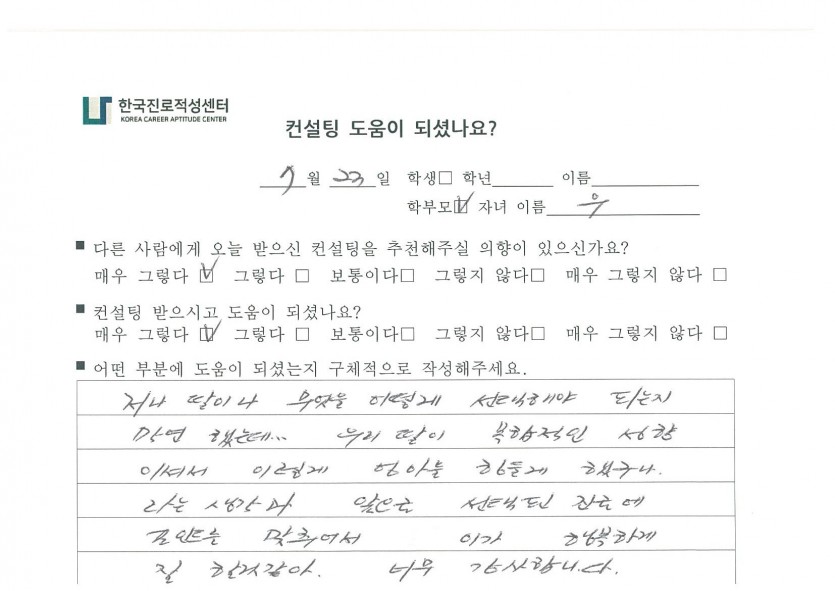 한국진로적성센터
KOREA CAREER APTITUDE CENTER
컨설팅 도움이 되셨나요?
7월 23일 학생□ 학년 이름
학부모☑ 자녀 이름 우
■ 다른 사람에게 오늘 받으신 컨설팅을 추천해주실 의향이 있으신가요?
매우 그렇다 ☑ 그렇다 □ 보통이다□ 그렇지 않다□ 매우 그렇지 않다 □
■ 컨설팅 받으시고 도움이 되셨나요?
매우 그렇다 ☑ 그렇다 □ 보통이다□ 그렇지 않다□ 매우 그렇지 않다 □
■ 어떤 부분에 도움이 되셨는지 구체적으로 작성해주세요.
저나 딸이나 무엇을 어떻게 선택해야 되는지
막연 했는데... 우리 딸이 복합적인 성향
이셔서 이렇게 힘들게 했구나.
라는 생각과 앞으로 선택된 진로에
포인트를 맞추어서 이가 행복하게
잘 할것같아. 너무 감사합니다.